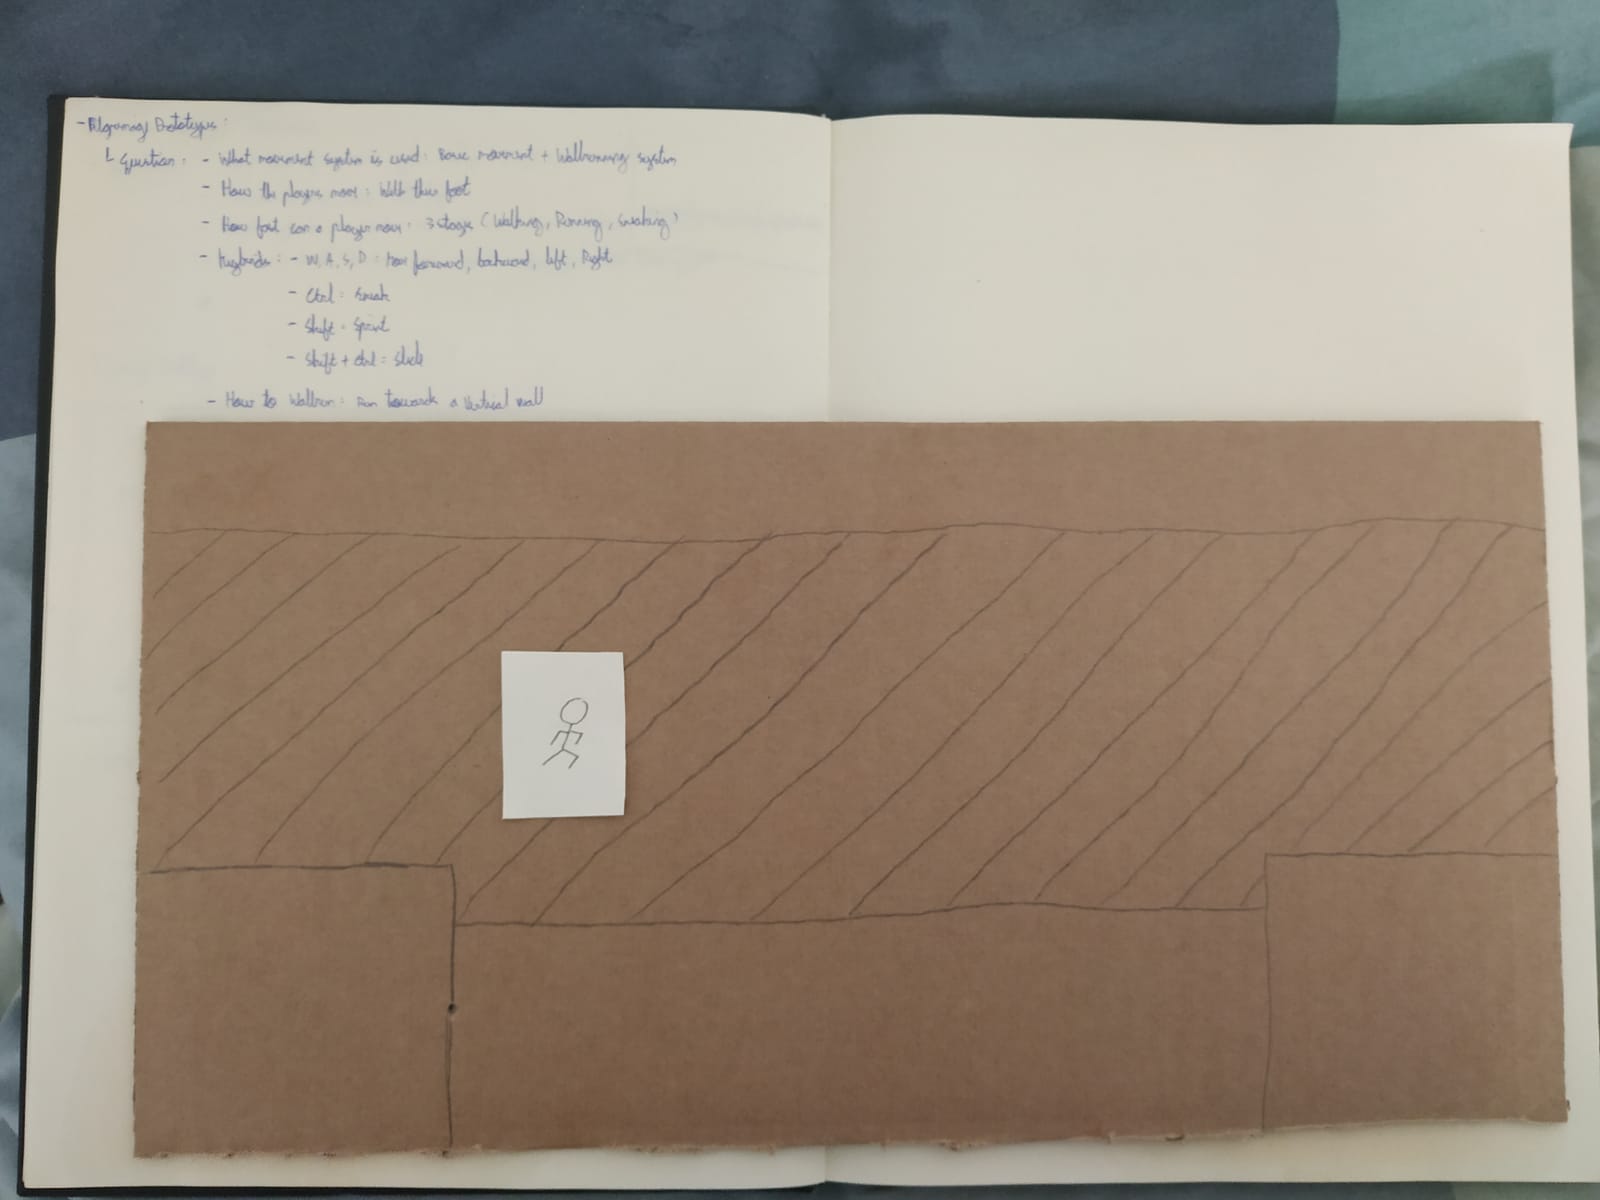 - Prototype:
└ Question: - What movement system is used: Basic movement + Wallrunning system
- How the players move: With their foot
- How fast can a player move: 3 stages (Walking, Running, Sneaking)
- Keybinds: - W, A, S, D: move forward, backward, left, Right
- Ctrl: sneak
- Shift: Sprint
- Shift + Ctrl: Slide
- How to Wallrun: Run towards a Vertical wall